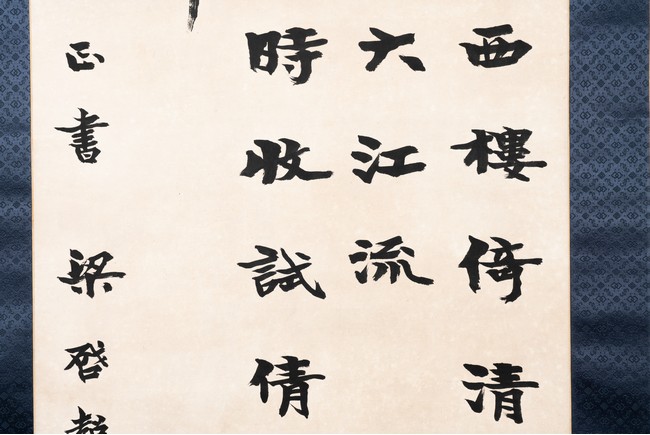 西樓倚清
大江流
時收試倩
正書 梁啓超